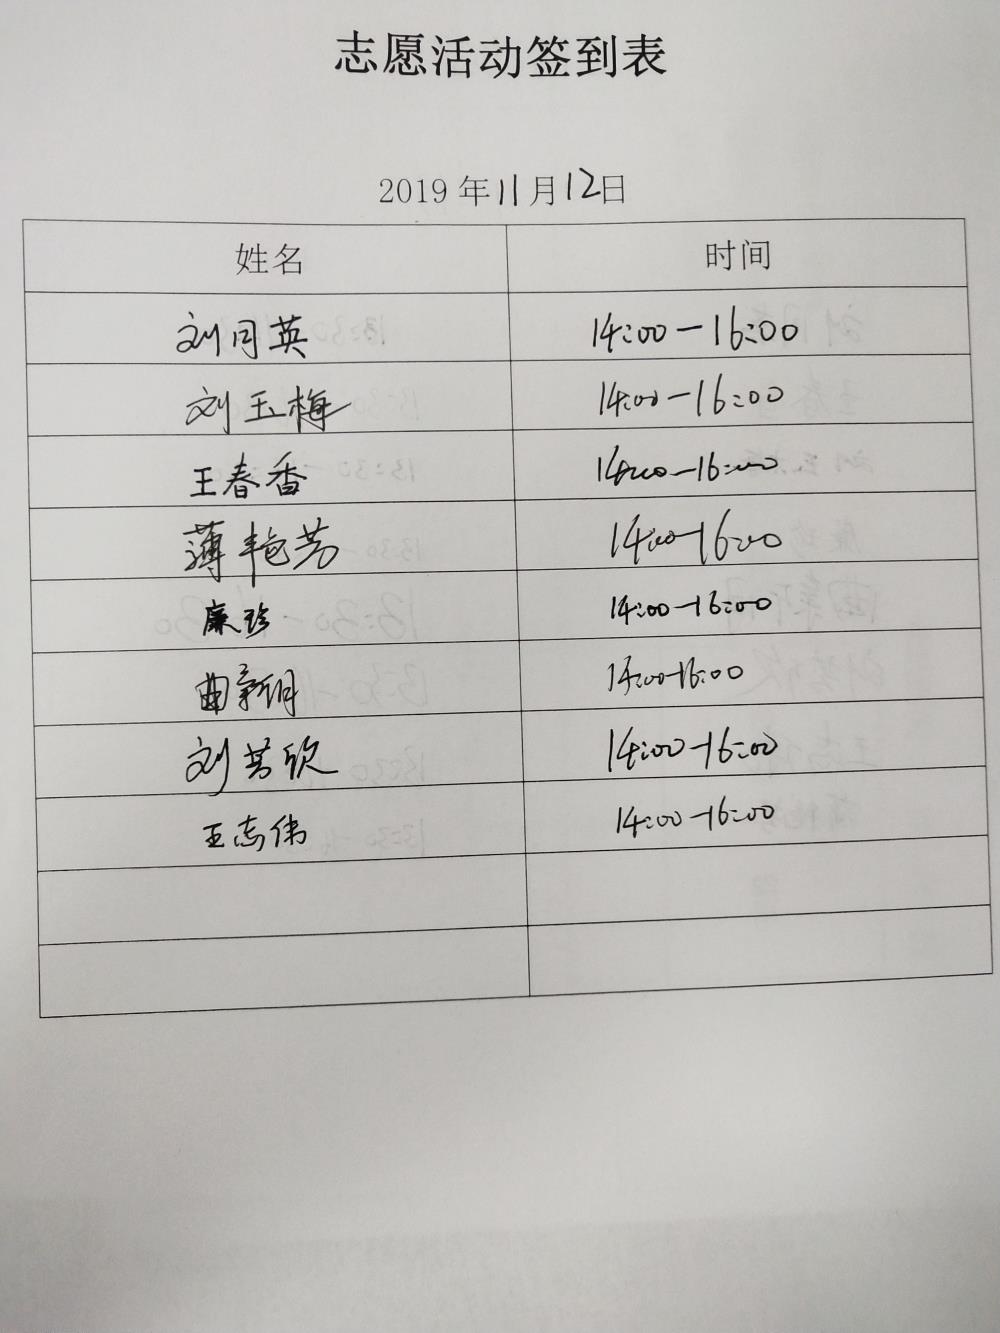 志愿活动签到表
2019年11月12日
姓名 时间
刘月英 14:00-16:00
刘玉梅 14:00-16:00
王春香 14:00-16:00
薄艳芳 14:00-16:00
廉珍 14:00-16:00
曲新明 14:00-16:00
刘芸欣 14:00-16:00
王志伟 14:00-16:00